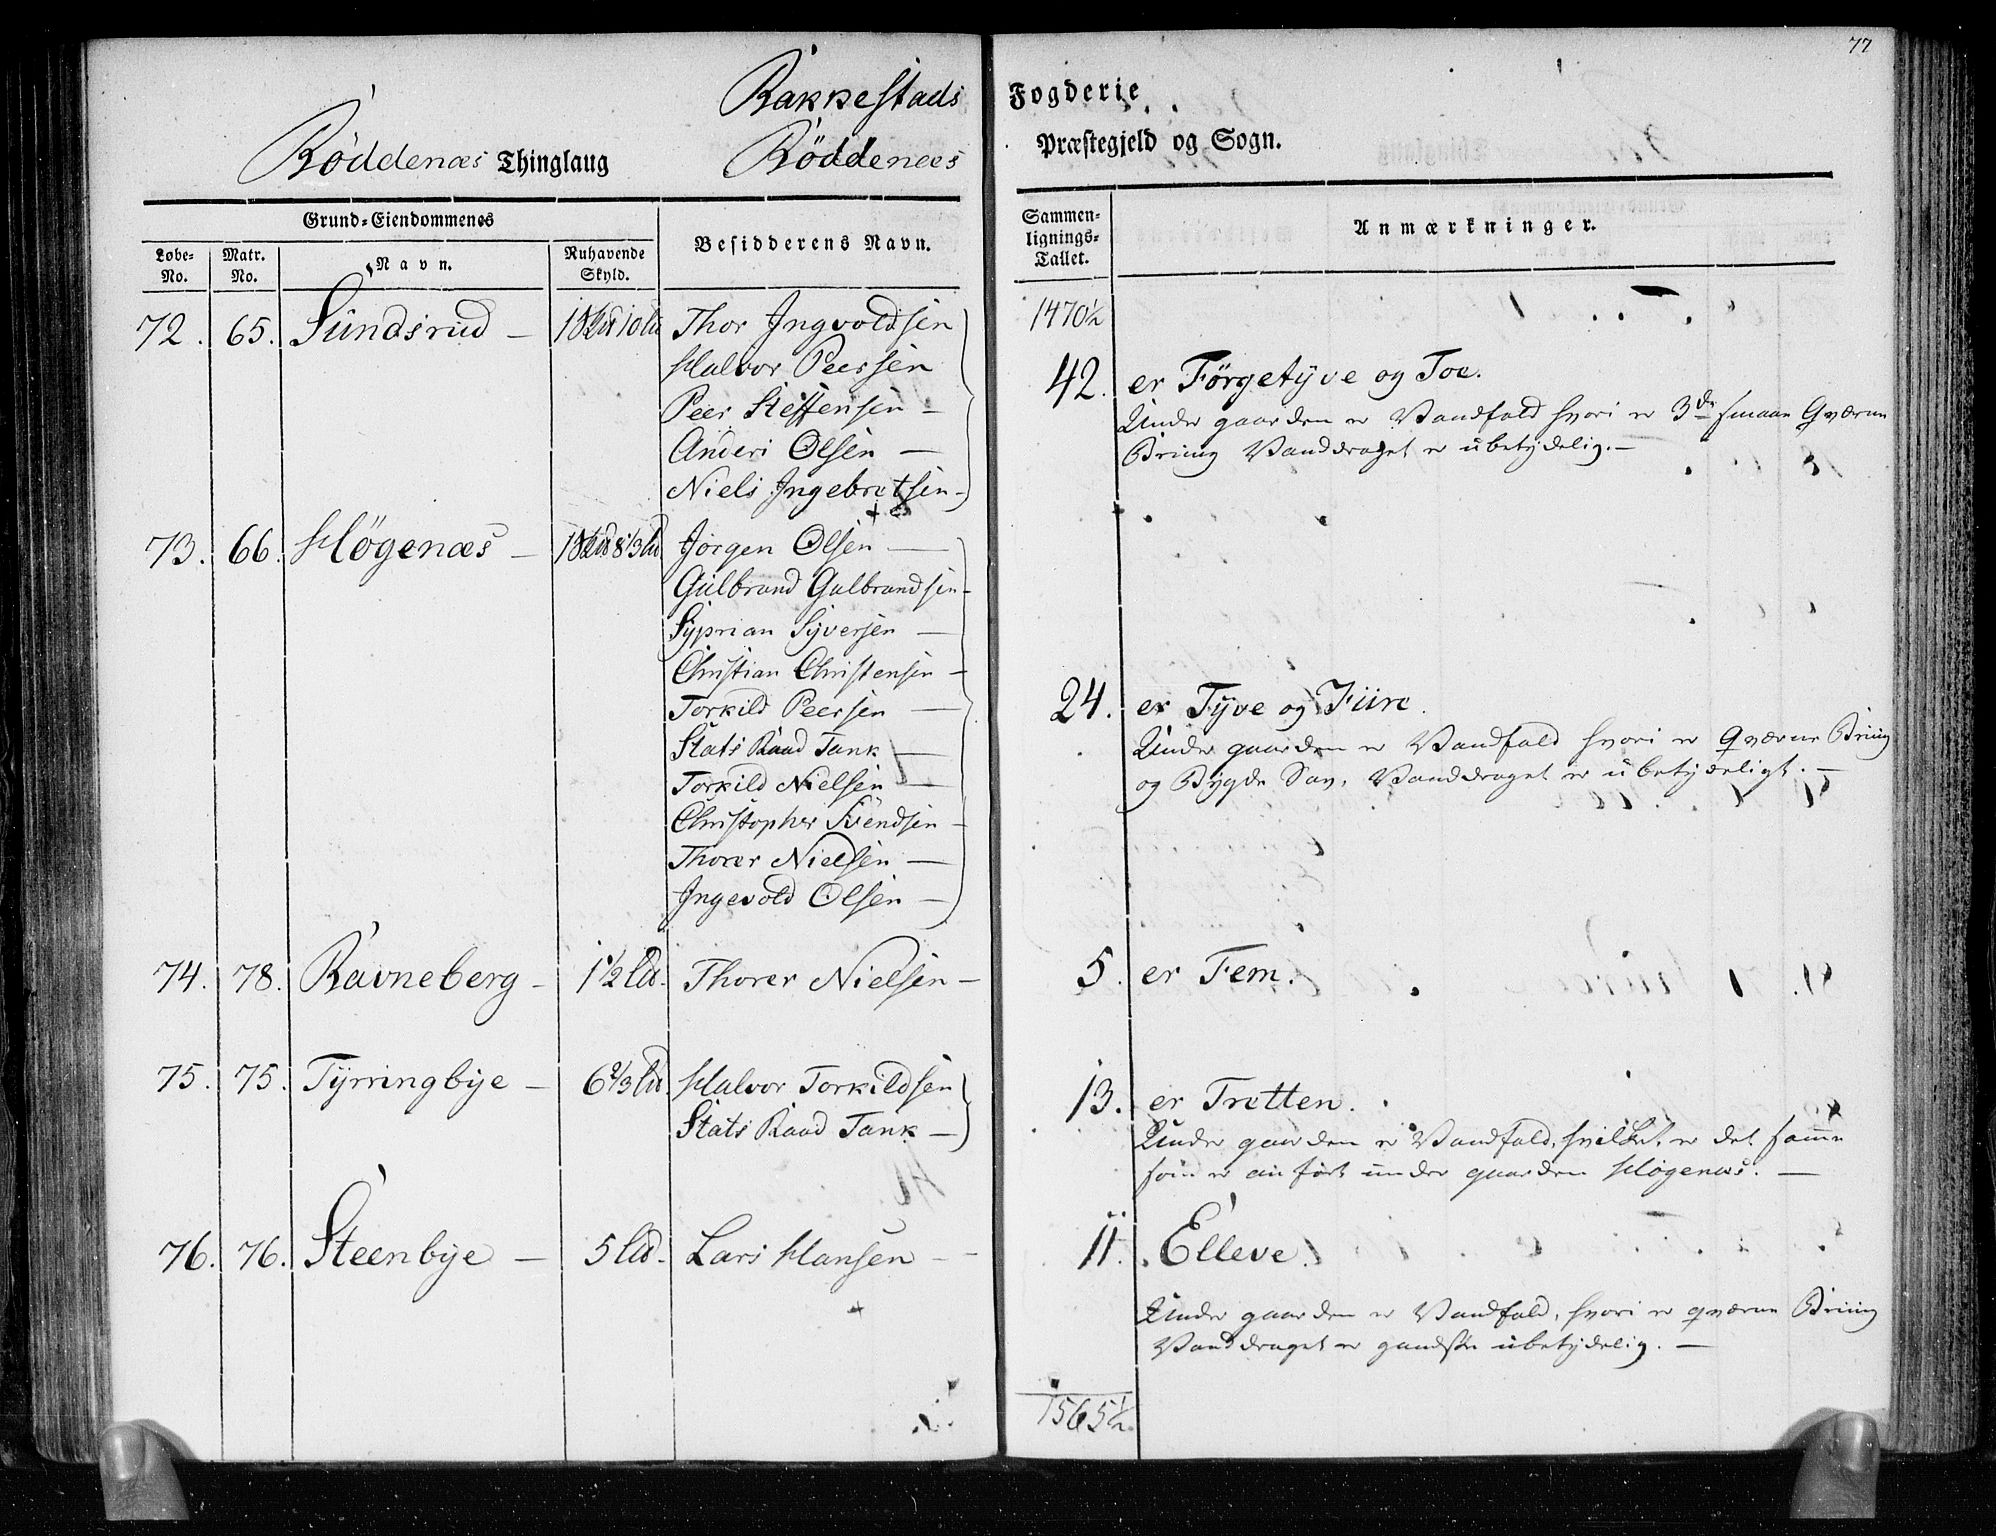 77
Rakkestads Fogderie
Röddenæs Thinglaug Röddenæs Præstegjeld og Sogn.
Grund-Eiendommenes
Løbe-No. Matr. No. Navn. Ruhavende Skyld. Besidderens Navn. Sammen-lignings-Tallet. Anmærkninger.
1470½
72. 65. Sundsrud — 1 10 Ld Thor Ingvoldsen
Halvor Peersen
Peer Steffensen —
Anders Olsen —
Niels Ingebretsen —
42. er Førgetyve og Toe.
Under gaarden er Vandfald hvori er 3de smaae Qværne
Bruug Vanddraget er ubetydelig. —
73. 66. Høgenæs — 1 8⅓ Ld Jörgen Olsen —
Gulbrand Gulbrandsen —
Syprian Syversen —
Christian Christensen —
Torkild Peersen —
Stats Raad Tank —
Torkild Nielsen —
Christopher Svendsen —
Thorer Nielsen —
Ingevold Olsen —
24. er Tyve og Fiire.
Under gaarden er Vandfald hvori er Qværne Bruug
og Bygde Sav, Vanddraget er ubetydeligt. —
74. 78. Ravneberg — 1½ Ld. Thorer Nielsen — 5. er Fem.
75. 75. Tyrringbye — 6⅔ Ld. Halvor Torkildsen
Stats Raad Tank —
13. er Tretten.
Under gaarden er Vandfald, hvilket er det samme
som er anført under gaarden Høgenæs. —
76. 76. Steenbye — 5 Ld. Lars Hansen — 11. Elleve.
Under gaarden er Vandfald, hvori er qværne Bruug
Vanddraget er gandske ubetydelig. —
1565½